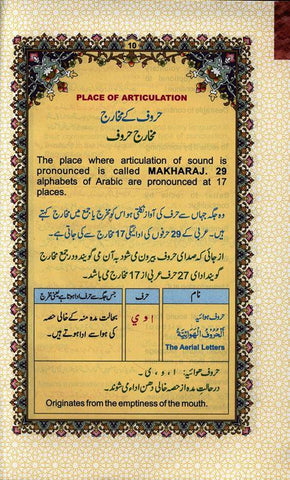 10
PLACE OF ARTICULATION
حروف کے مخارج
مخارج حروف
The place where articulation of sound is
pronounced is called MAKHARAJ. 29
alphabets of Arabic are pronounced at 17
places.
وہ جگہ جہاں سے حرف کی آواز نکلتی ہو اس کو مخرج یا جمع میں مخارج کہتے
ہیں۔ عربی کے 29 حرفوں کی ادائیگی 17 مخارج سے کی جاتی ہے۔
از جائی کہ صدای حروف بیرون می شود بہ آن می گویند و در جمع مخارج
گویند ادای 27 حرف عربی از 17 مخارج می باشد۔
نام
حرف
جس جگہ سے حرف ادا ہوتا ہے یعنی مخرج
حروف ہوائیہ
اَلْحُرُوْفُ الْهَوَائِيَّةُ
The Aerial Letters
ا و ي
بحالت مدہ منہ کے خالی حصہ
کی ہوا سے ادا ہوتے ہیں۔
حروف حوائیہ: ا ، و ، ی ۔
در حالت مدہ از حصہ خالی دھن ادا می شوند۔
Originates from the emptiness of the mouth.